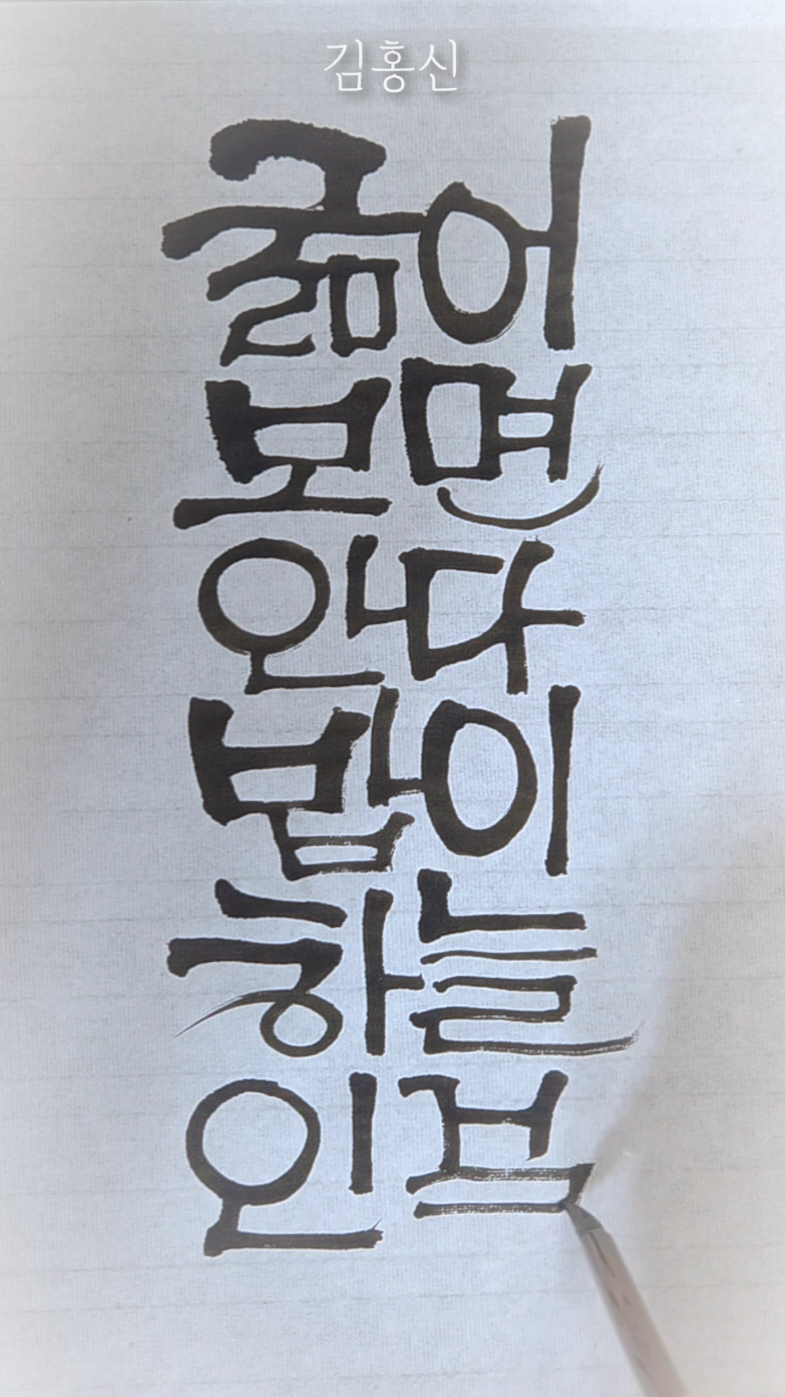 김홍신
굶어
보면
안다
밥이
하늘
인걸